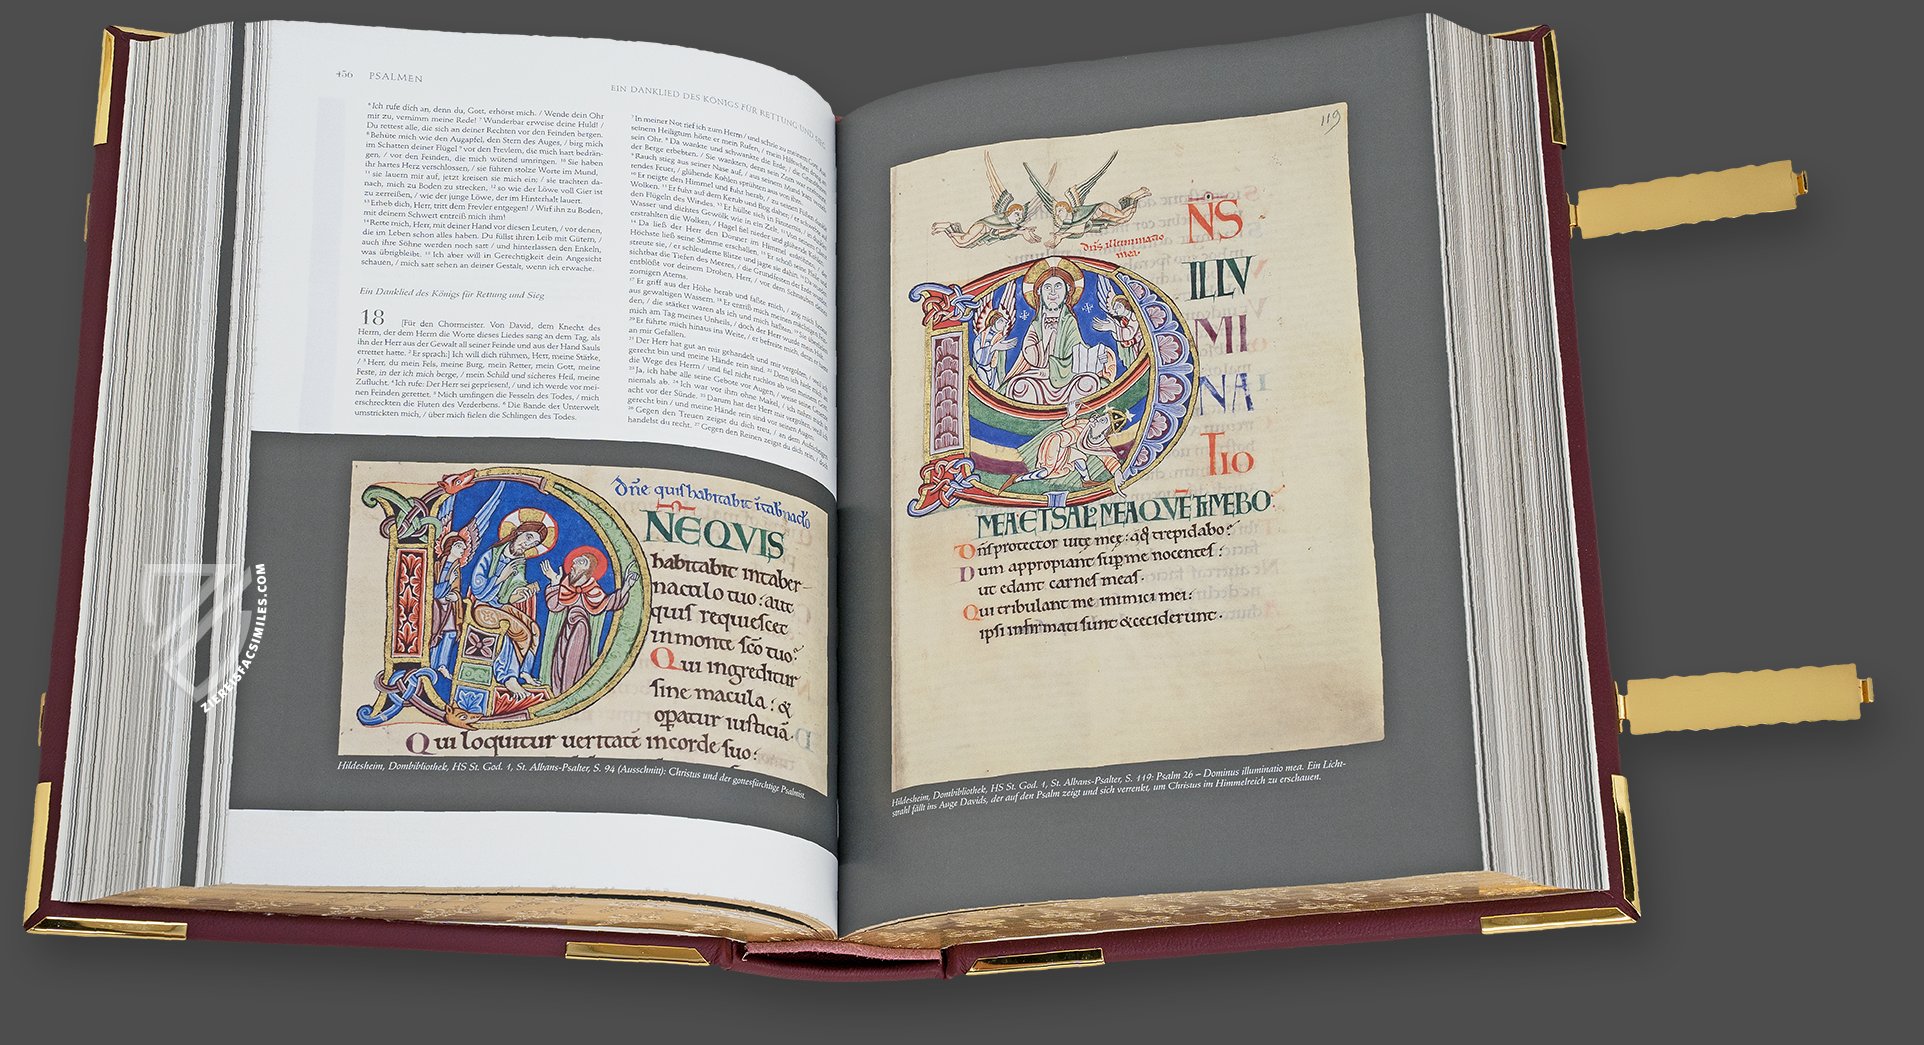 456 PSALMEN
⁶ Ich rufe dich an, denn du, Gott, erhörst mich. / Wende dein Ohr
mir zu, vernimm meine Rede! ⁷ Wunderbar erweise deine Huld! /
Du rettest alle, die sich an deiner Rechten vor den Feinden bergen.
⁸ Behüte mich wie den Augapfel, den Stern des Auges, / birg mich
im Schatten deiner Flügel ⁹ vor den Frevlern, die mich hart bedrän-
gen, / vor den Feinden, die mich wütend umringen. ¹⁰ Sie haben
ihr hartes Herz verschlossen, / sie führen stolze Worte im Mund,
¹¹ sie lauern mir auf, jetzt kreisen sie mich ein; / sie trachten da-
nach, mich zu Boden zu strecken, ¹² so wie der Löwe voll Gier ist
zu zerreißen, / wie der junge Löwe, der im Hinterhalt lauert.
¹³ Erheb dich, Herr, tritt dem Frevler entgegen! / Wirf ihn zu Boden,
mit deinem Schwert entreiß mich ihm!
¹⁴ Rette mich, Herr, mit deiner Hand vor diesen Leuten, / vor denen,
die im Leben schon alles haben. Du füllst ihren Leib mit Gütern, /
auch ihre Söhne werden noch satt / und hinterlassen den Enkeln,
was übrigbleibt. ¹⁵ Ich aber will in Gerechtigkeit dein Angesicht
schauen, / mich satt sehen an deiner Gestalt, wenn ich erwache.
Ein Danklied des Königs für Rettung und Sieg
18 [Für den Chormeister. Von David, dem Knecht des
Herrn, der dem Herrn die Worte dieses Liedes sang an dem Tag, als
ihn der Herr aus der Gewalt all seiner Feinde und aus der Hand Sauls
errettet hatte. ² Er sprach:] Ich will dich rühmen, Herr, meine Stärke,
/ ³ Herr, du mein Fels, meine Burg, mein Retter, mein Gott, meine
Feste, in der ich mich berge, / mein Schild und sicheres Heil, meine
Zuflucht. ⁴ Ich rufe: Der Herr sei gepriesen!, / und ich werde vor mei-
nen Feinden gerettet. ⁵ Mich umfingen die Fesseln des Todes, / mich
erschreckten die Fluten des Verderbens. ⁶ Die Bande der Unterwelt
umstrickten mich, / über mich fielen die Schlingen des Todes.
EIN DANKLIED DES KÖNIGS FÜR RETTUNG UND SIEG
⁷ In meiner Not rief ich zum Herrn / und schrie zu meinem Gott. Aus
seinem Heiligtum hörte er mein Rufen, / mein Hilfeschrei drang an
sein Ohr. ⁸ Da wankte und schwankte die Erde, / die Grundfesten
der Berge erbebten. / Sie wankten, denn sein Zorn war entbrannt.
⁹ Rauch stieg aus seiner Nase auf, / aus seinem Mund kam verzeh-
rendes Feuer, / glühende Kohlen sprühten aus von ihm.
¹⁰ Er neigte den Himmel und fuhr herab, / zu seinen Füßen dunkle
Wolken. ¹¹ Er fuhr auf dem Kerub und flog daher; / er schwebte auf
den Flügeln des Windes. ¹² Er hüllte sich in Finsternis, / in dunkles
Wasser und dichtes Gewölk wie in ein Zelt. ¹³ Von seinem Glanz
erstrahlten die Wolken, / Hagel fiel nieder und glühende Kohlen.
¹⁴ Da ließ der Herr den Donner im Himmel erdröhnen, / der
Höchste ließ seine Stimme erschallen. ¹⁵ Er schoß seine Pfeile und
streute sie, / er schleuderte Blitze und jagte sie dahin. ¹⁶ Da wurden
sichtbar die Tiefen des Meeres, / die Grundfesten der Erde wurden
entblößt vor deinem Drohen, Herr, / vor dem Schnauben deines
zornigen Atems.
¹⁷ Er griff aus der Höhe herab und faßte mich, / zog mich heraus
aus gewaltigen Wassern. ¹⁸ Er entriß mich meinen mächtigen Fein-
den, / die stärker waren als ich und mich haßten. ¹⁹ Sie überfielen
mich am Tag meines Unheils, / doch der Herr wurde mein Halt.
²⁰ Er führte mich hinaus ins Weite, / er befreite mich, denn er hatte
an mir Gefallen.
²¹ Der Herr hat gut an mir gehandelt und mir vergolten, / weil ich
gerecht bin und meine Hände rein sind. ²² Denn ich hielt mich an
die Wege des Herrn / und fiel nicht ruchlos ab von meinem Gott.
²³ Ja, ich habe alle seine Gebote vor Augen, / weise seine Gesetze
niemals ab. ²⁴ Ich war vor ihm ohne Makel, / ich nahm mich in
acht vor der Sünde. ²⁵ Darum hat der Herr mir vergolten, weil ich
gerecht bin / und meine Hände rein sind vor seinen Augen.
²⁶ Gegen den Treuen zeigst du dich treu, / an dem Aufrichtigen
handelst du recht. ²⁷ Gegen den Reinen zeigst du dich rein, / doch
dñe quis habitabit ī tabnaclo
NE QVIS
habitabit in taber-
naculo tuo: aut
quis requiescet
in monte sc̄o tuo:
Qui ingreditur
sine macula: &
opatur iusticiā.
Qui loquitur ueritatē in corde suo:
Hildesheim, Dombibliothek, HS St. God. 1, St. Albans-Psalter, S. 94 (Ausschnitt): Christus und der gottesfürchtige Psalmist.
119
dn̄s illuminatio
mea.
N̄S
ILLV
MI
NA
TIO
MEA ET SAL MEA QVĒ TIMEBO.
Dn̄s protector uitę męę: a q̊ trepidabo:
Dum appropiant sup me nocentes:
ut edant carnes meas.
Qui tribulant me inimici mei:
ipsi infirmati sunt & ceciderunt.
Hildesheim, Dombibliothek, HS St. God. 1, St. Albans-Psalter, S. 119: Psalm 26 – Dominus illuminatio mea. Ein Licht-
strahl fällt ins Auge Davids, der auf den Psalm zeigt und sich verrenkt, um Christus im Himmelreich zu erschauen.
ZIEREISFACSIMILES.COM